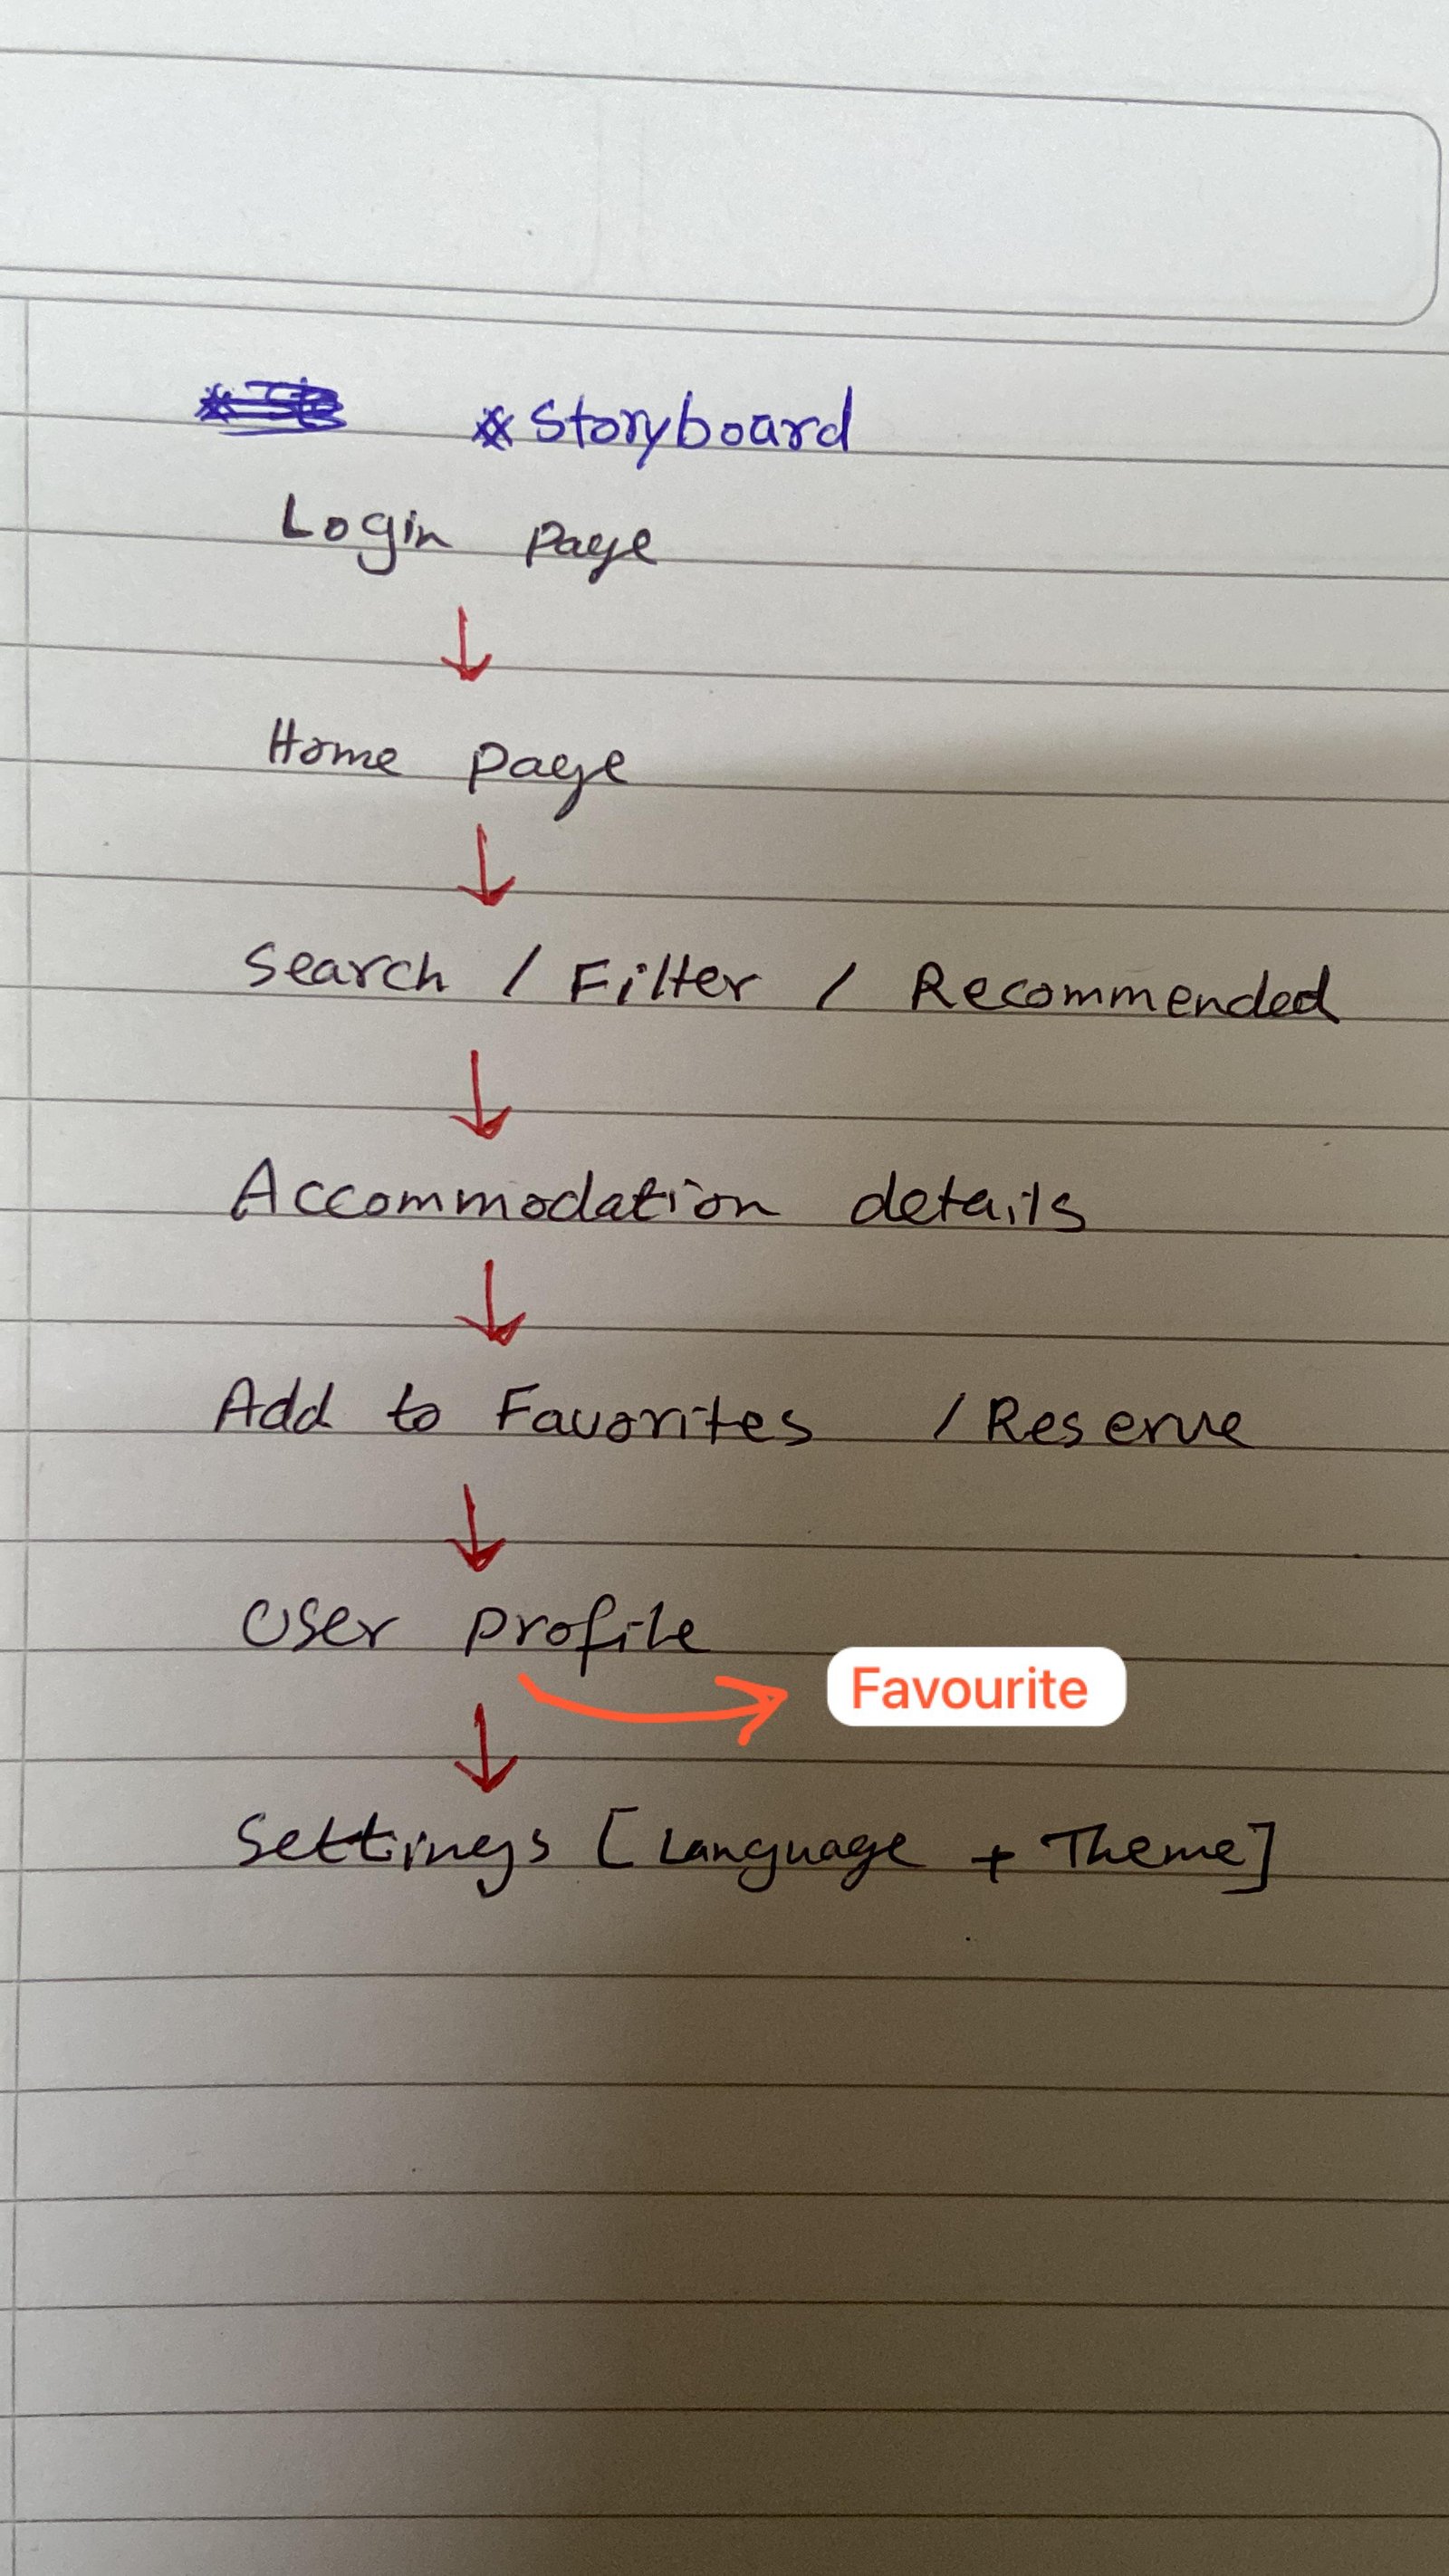 * Storyboard
Login page
↓
Home page
↓
Search / Filter / Recommended
↓
Accommodation details
↓
Add to Favorites / Reserve
↓
User profile
→ Favourite
↓
Settings [Language + Theme]